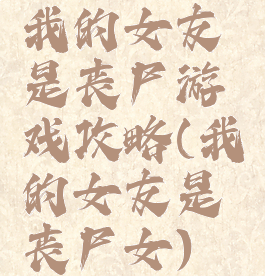 我的女友
是丧尸游
戏攻略(我
的女友是
丧尸女)